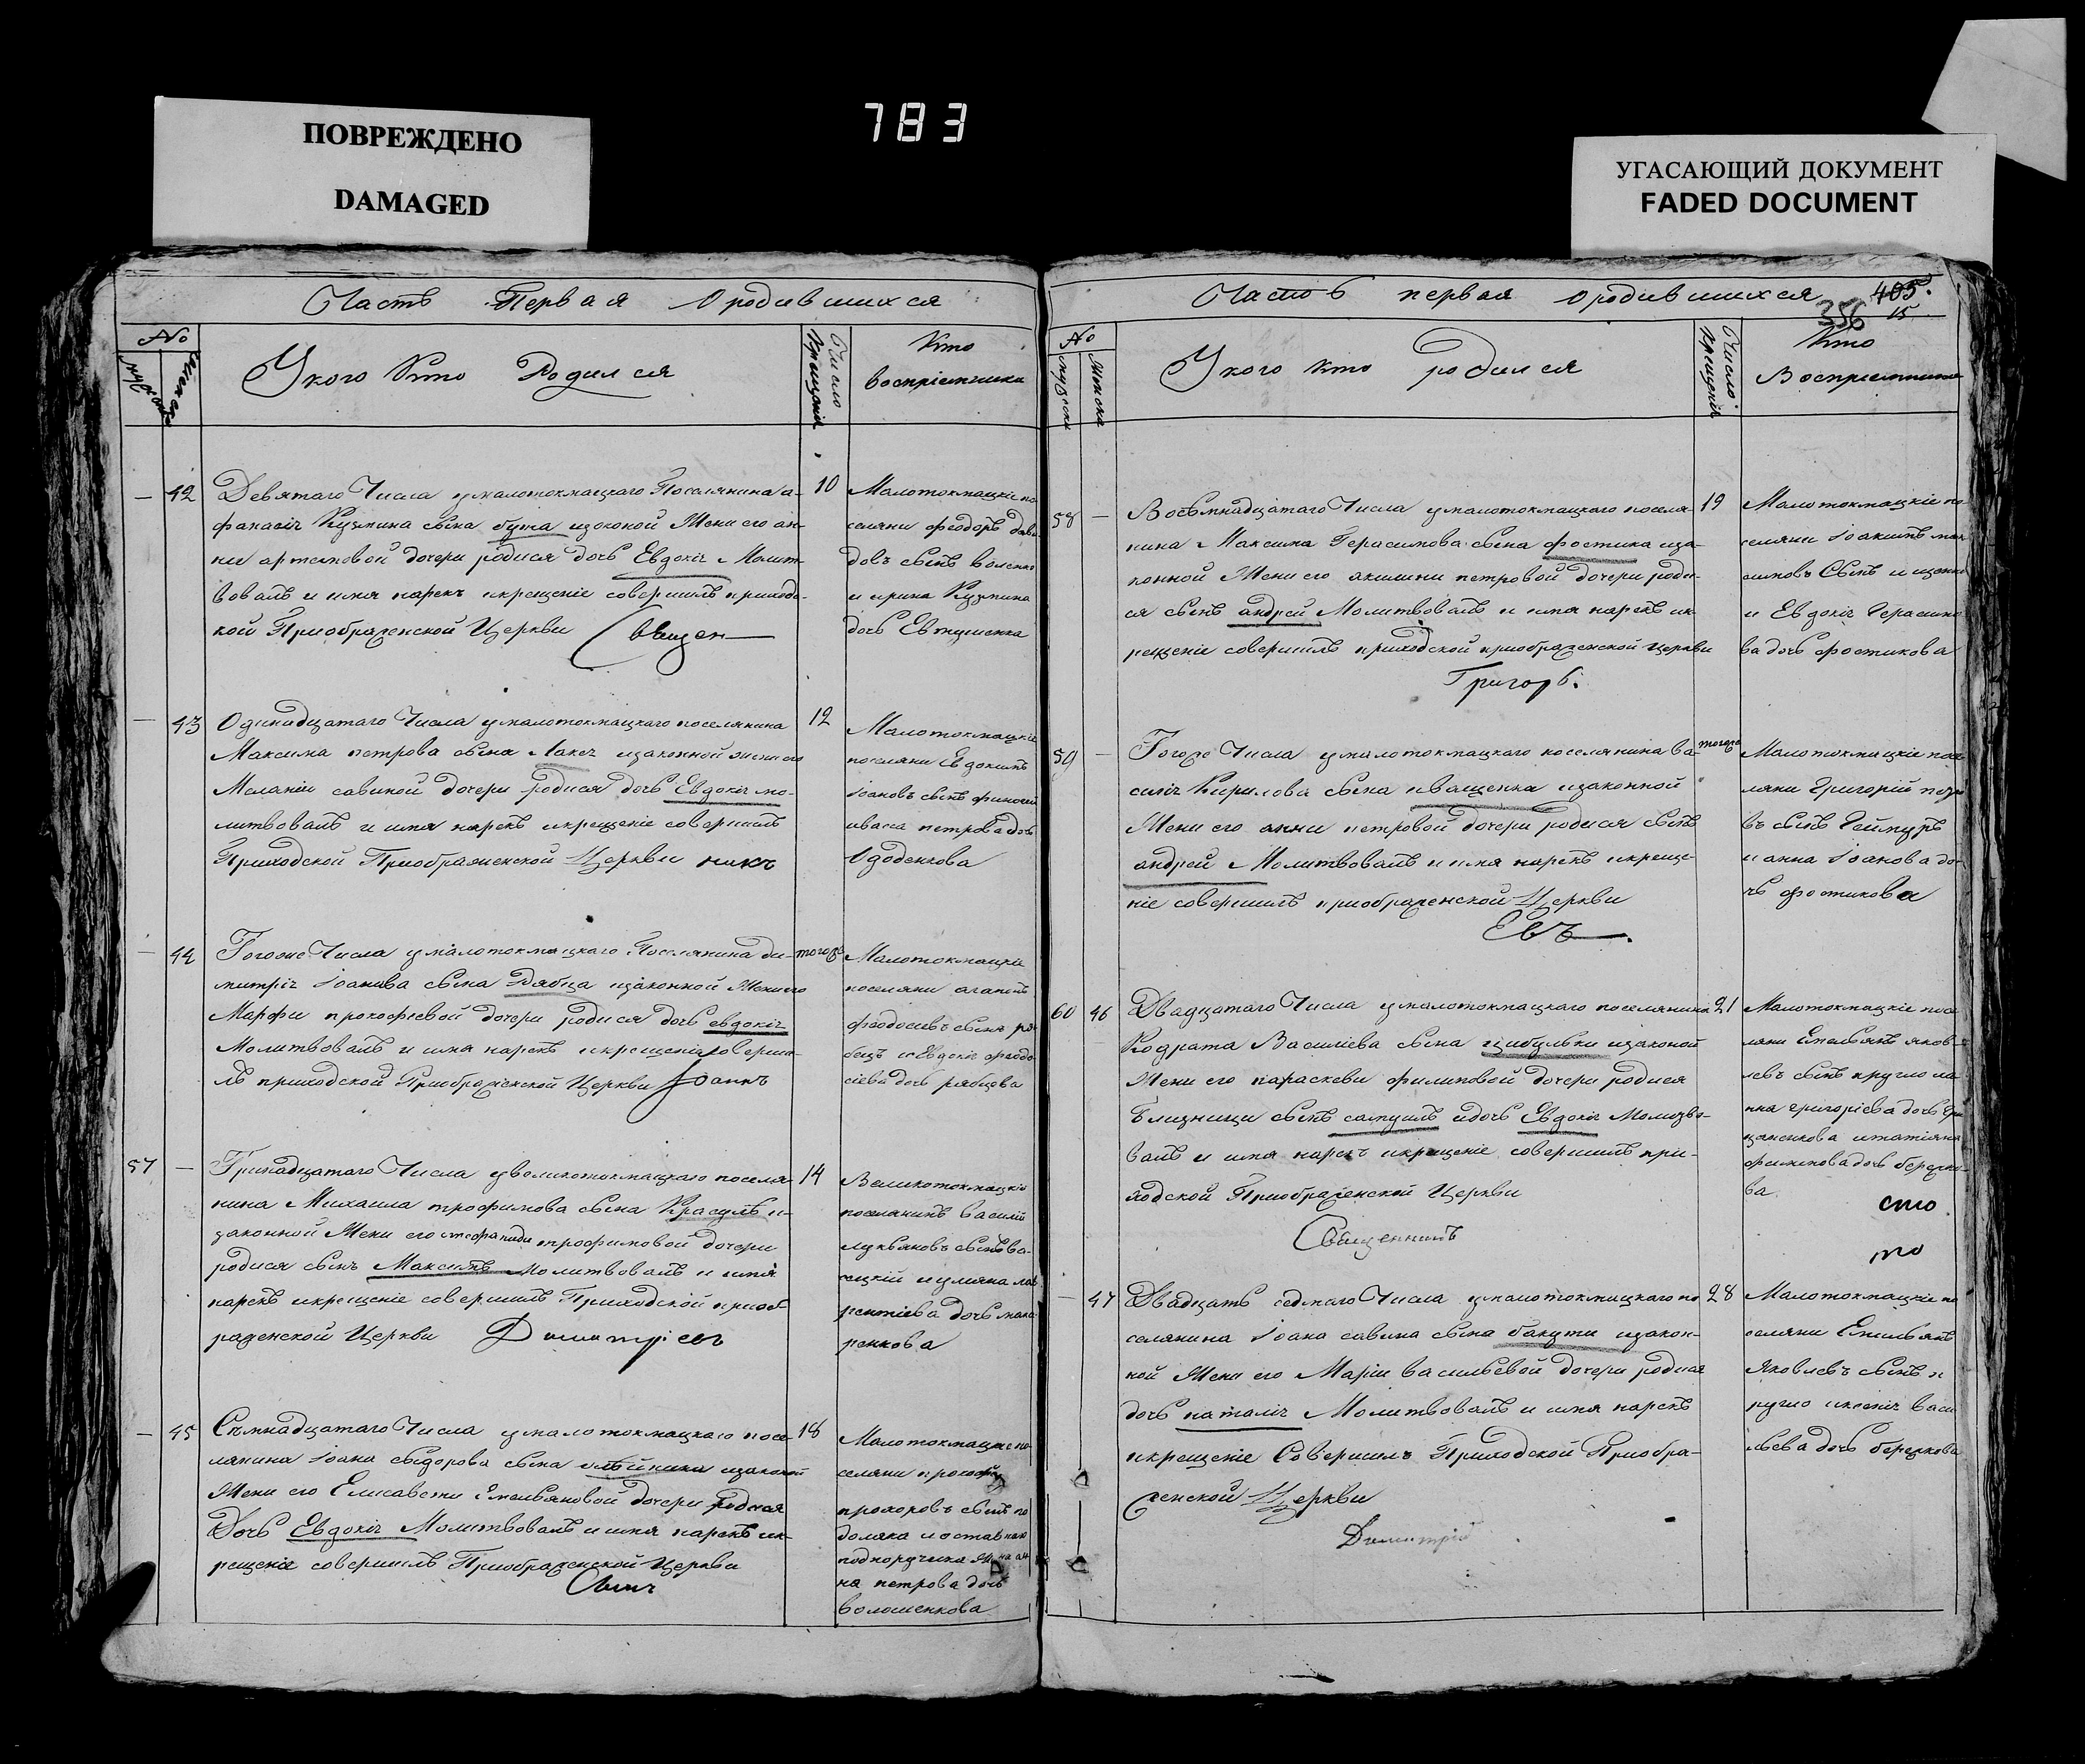 783
ПОВРЕЖДЕНО
DAMAGED
УГАСАЮЩИЙ ДОКУМЕНТ
FADED DOCUMENT
Часть Первая О родившихся
№
Укого Кто Родился
Число крещенія
Кто
воспріемники
42
Девятаго Числа умалотокмацкаго Поселянина а-
фанасія Кузмина сына бута изаконой Жени его ан-
ни артемовой дочери родися дочь Евдокія Молит-
вовалъ и имя нарекъ икрещеніе совершилъ приходс-
кой Приображенской Церкви Священ
10
Малотокмацкіе по
селяни феодоръ дави
довъ сынъ
и ирина Кузмина
дочь Евтушенка
43
Одинадцатаго Числа умалотокмацкаго поселянина
Максима петрова сына изаконной жени его
Меланіи савиной дочери родися дочь Евдокія мо-
литвовалъ и имя нарекъ икрещеніе совершилъ
Приходской Приображенской Церкви никъ
12
Малотокмацкіе
поселяни Евдокимъ
Іоановъ сынъ
петрова дочь
44
Тогоже Числа умалотокмацкаго Поселянина ди-
митрія Іоанова сына Рябца изаконной Жени его
Марфи прокофіевой дочери родися дочь евдокія
Молитвовалъ и имя нарекъ икрещеніе соверши-
лъ приходской Приображенской Церкви Іоаннъ
тогоже
Малотокмацкіе
поселяни агапъ
феодосіевъ сынъ ря-
бецъ и Евдокія феодо-
сіева дочь рябцова
57
Тринадцатаго Числа увеликотокмацкаго поселя-
нина Михаила трофимова сына Красуль и-
законной Жени его стефаниди трофимовой дочери
родися сынъ Максимъ Молитвовалъ и имя
нарекъ икрещеніе совершилъ Приходской приоб-
раженской Церкви Димитріевъ
14
Великотокмацкіе
поселянинъ василій
лукьяновъ сынъ
и уляна лав
рентіева дочь мака
ренкова
45
Семнадцатаго Числа умалотокмацкаго посе-
лянина Іоана сыдорова сына олейника изаконой
Жени его Елисавети Емельяновой дочери родися
Дочь Евдокія Молитвовалъ и имя нарекъ ик-
рещеніе совершилъ Приображенской Церкви
18
Малотокмацкіе по-
селяни прокофій
прохоровъ сынъ по
доляка и отставнаго
подпоручика Жена ан
на петрова дочь
волошенкова
Часть первая О родившихся
405.
356
15
№
Укого кто родился
Число крещенія
Кто
Воспріемники
58
Восемнадцатаго Числа умалотокмацкаго поселя-
нина Максима Герасимова сына фостика иза-
конной Жени его акилини петровой дочери роди-
ся сынъ андрей Молитвовалъ и имя нарекъ ик-
рещеніе совершилъ приходской приображенской церкви
Григорь.
19
Малотокмацкіе по
селяни Іоакимъ мак
симовъ Сынъ ищенко
и Евдокія Герасимо
ва дочь фостикова
59
Тогоже Числа умалотокмацкаго поселянина ва-
силія Кирилова сына иващенка изаконной
Жени его анни петровой дочери родися сынъ
андрей Молитвовалъ и имя нарекъ икреще-
ніе совершилъ приображенской Церкви
Евъ
тогоже
Малотокмацкіе посе
ляни Григорій
въ сынъ
и анна Іоанова до-
чь фостикова
60 46
Двадцатаго Числа умалотокмацкаго поселянина
Кодрата Василіева сына цибульки изаконой
Жени его параскеви филиповой дочери родися
близнци сынъ самуилъ идочь Евдокія Молитво-
валъ и имя нарекъ икрещеніе совершилъ при-
ходской Приображенской Церкви
Священникъ
21
Малотокмацкіе посе
ляни Емельянъ яков-
левъ сынъ кругло иа-
нна григоріева дочь
итатіяна
дочь
ва
сто
то
47
Двадцать седмаго Числа умалотокмацкаго по
селянина Іоана савина сына бакути изакон-
ной Жени его Маріи васильевой дочери родися
дочь наталія Молитвовалъ и имя нарекъ
икрещеніе Совершилъ Приходской Приобра-
женской Церкви
Димитрій
28
Малотокмацкіе по
селяни Емельянъ
Яковлевъ сынъ к
ругло иксенія васи
льева дочь